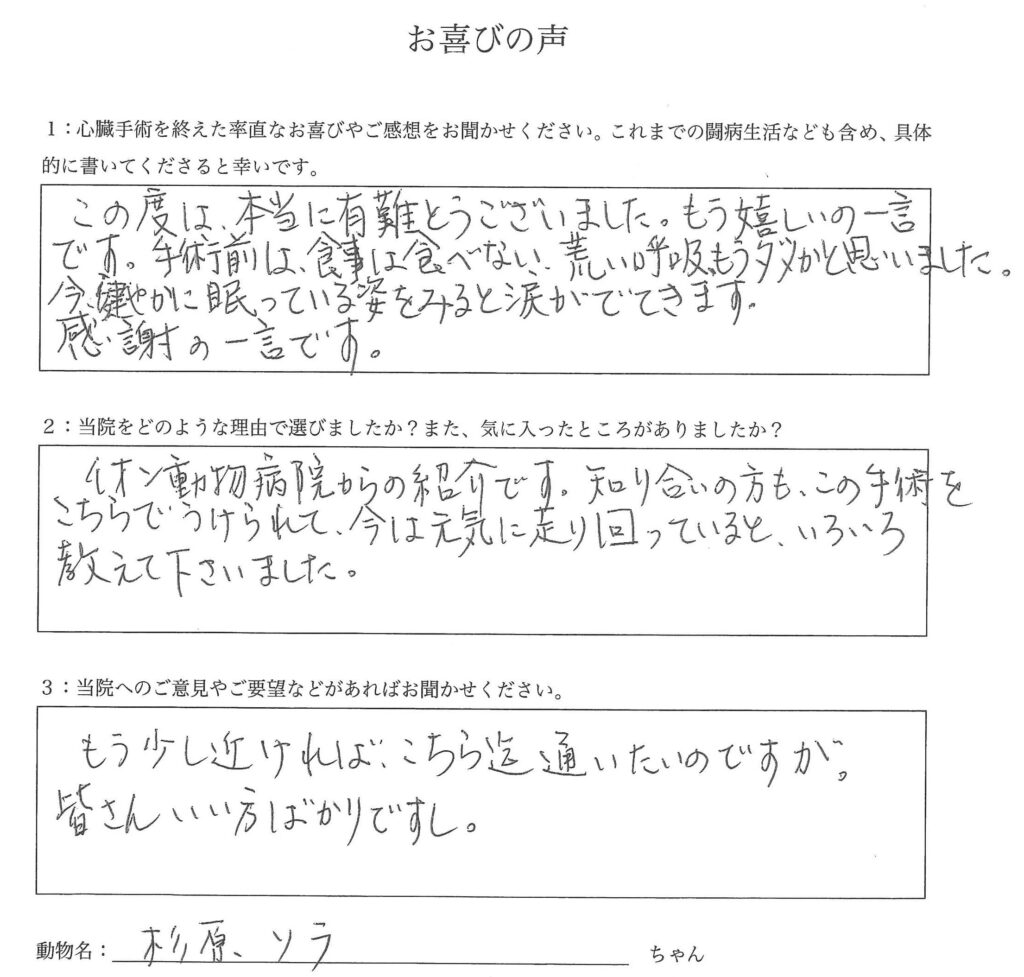 お喜びの声
1：心臓手術を終えた率直なお喜びやご感想をお聞かせください。これまでの闘病生活なども含め、具体
的に書いてくださると幸いです。
この度は、本当に有難とうございました。もう嬉しいの一言
です。手術前は、食事は食べない、荒い呼吸、もうダメかと思いました。
今、健やかに眠っている姿をみると涙がでてきます。
感謝の一言です。
2：当院をどのような理由で選びましたか？また、気に入ったところがありましたか？
イオン動物病院からの紹介です。知り合いの方も、この手術を
こちらでうけられて、今は元気に走り回っていると、いろいろ
教えて下さいました。
3：当院へのご意見やご要望などがあればお聞かせください。
もう少し近ければ、こちら迄通いたいのですが。
皆さんいい方ばかりですし。
動物名：杉原、ソラ ちゃん